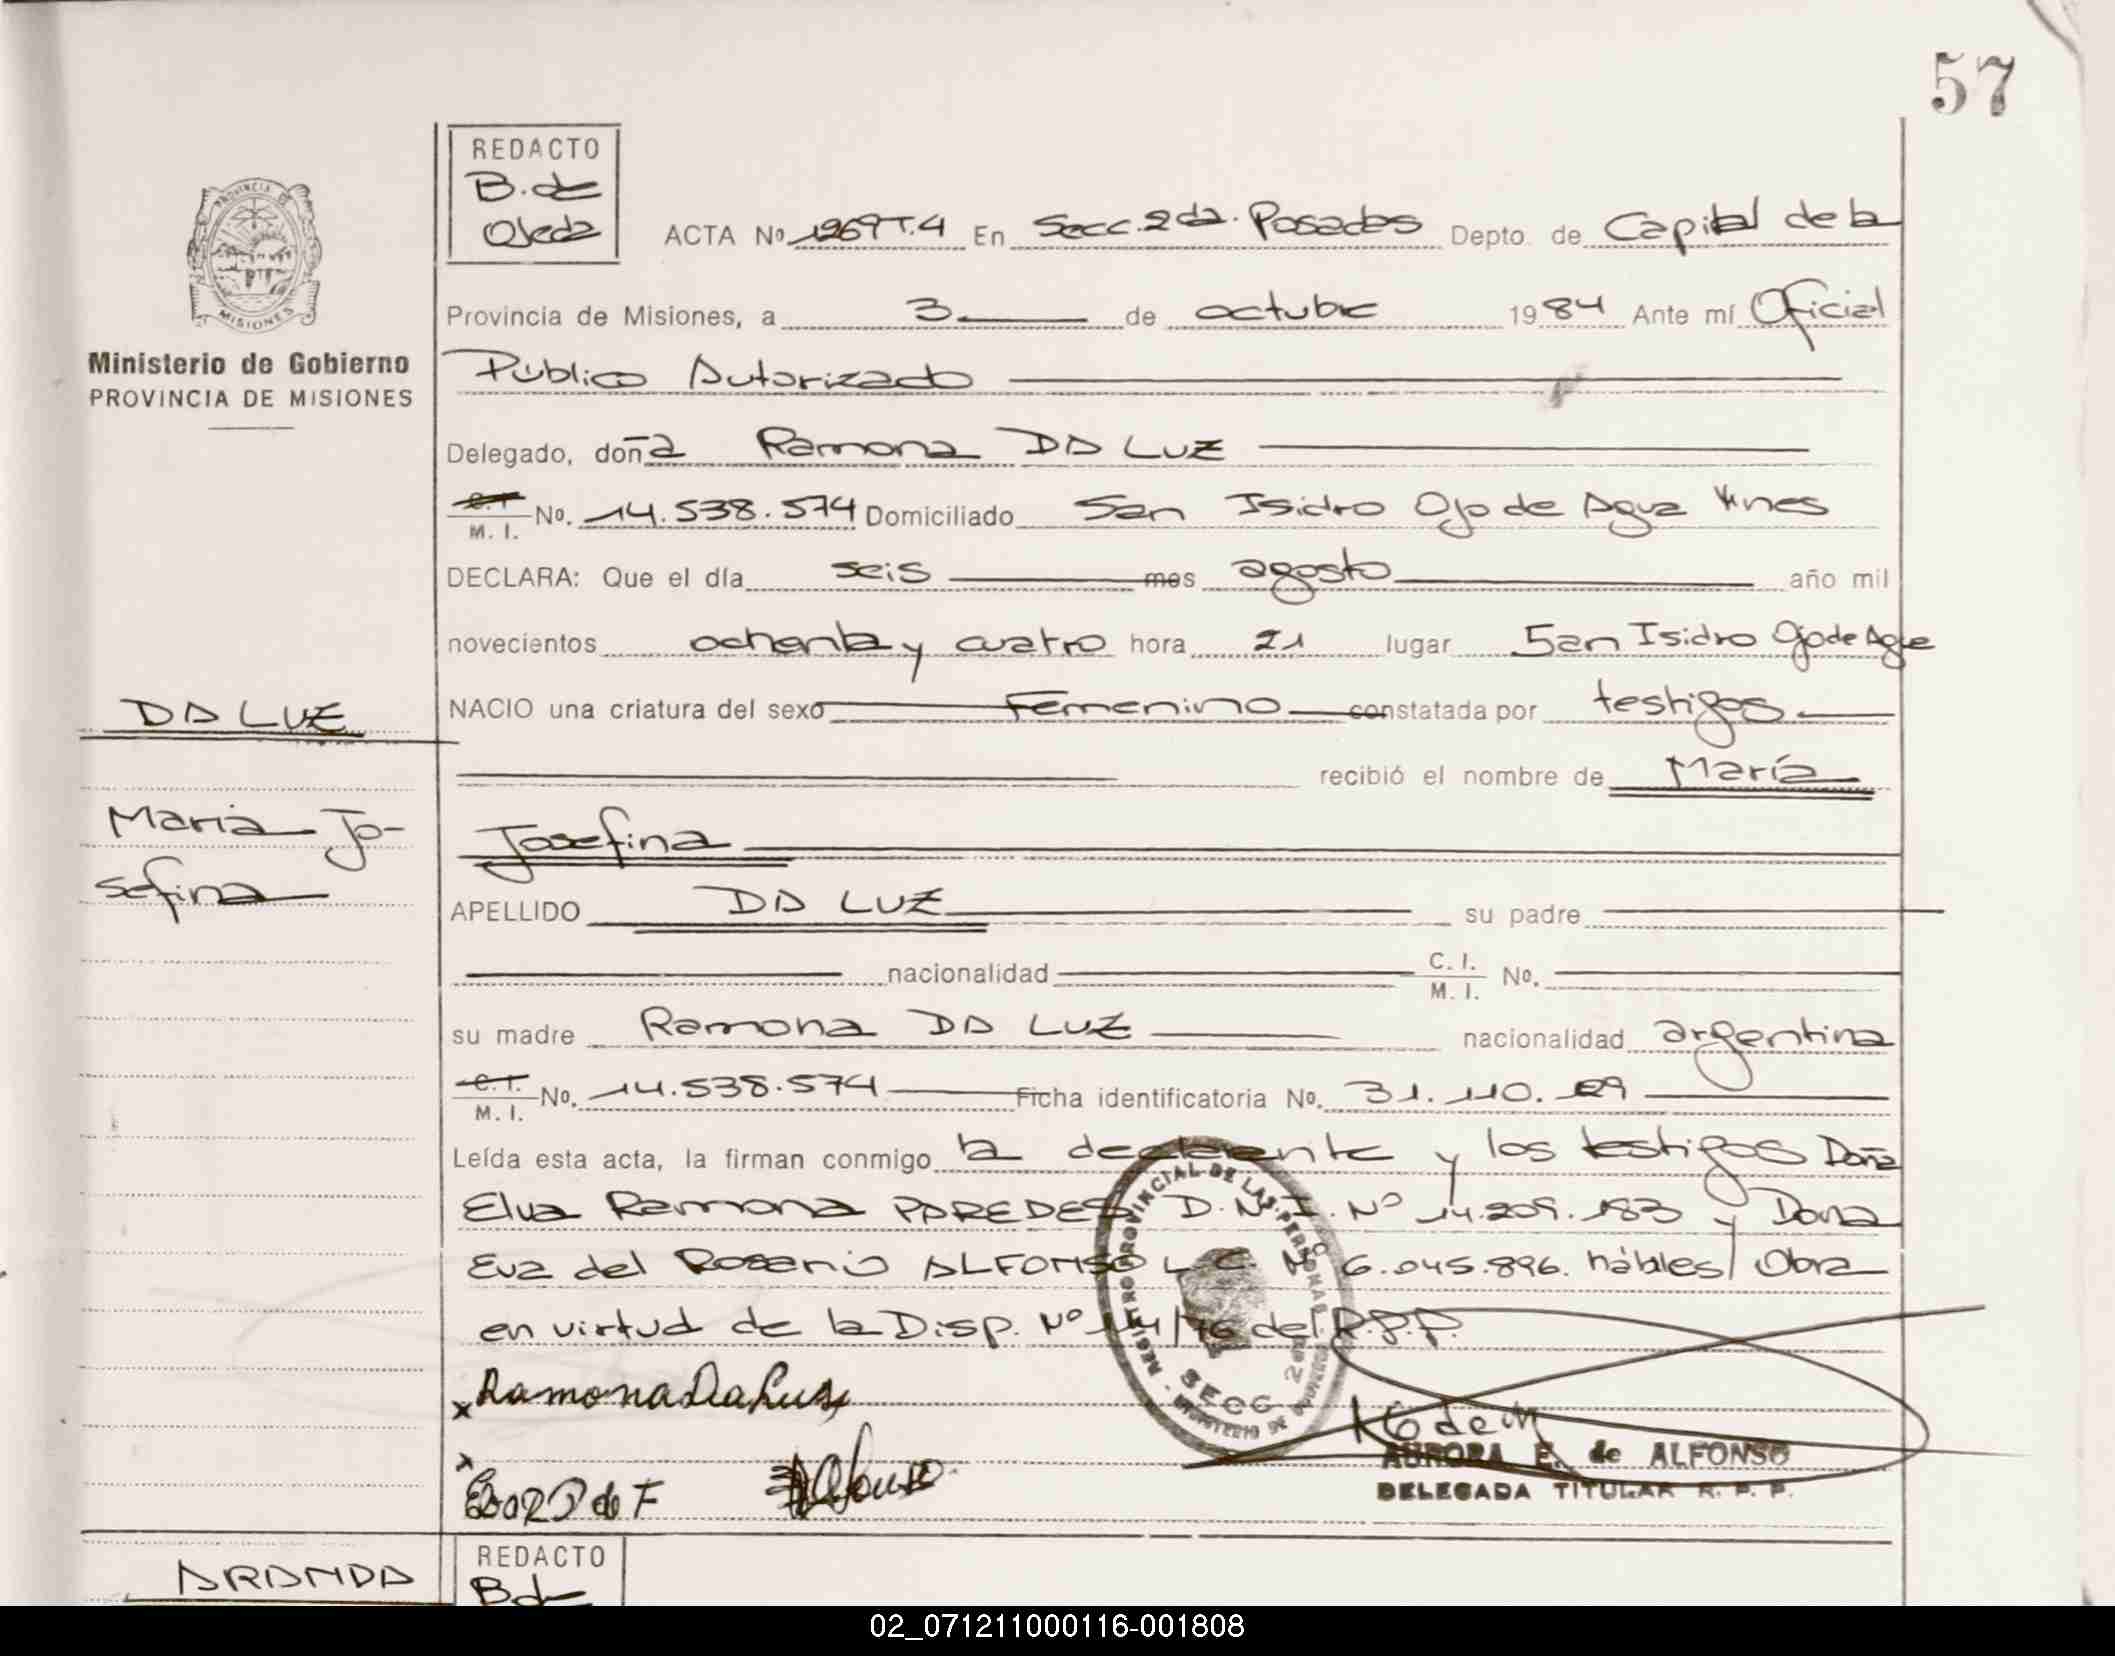 57
REDACTO
B. de
Ojeda
ACTA Nº 1269 T.4 En Secc. 2da. Posadas Depto. de Capital de la
PROVINCIA DE
MISIONES
Provincia de Misiones, a 3 de octubre 1984 Ante mí Oficial
Ministerio de Gobierno
PROVINCIA DE MISIONES
Público Autorizado
Delegado, doña Ramona DA LUZ
C.I.
M. I. No. 14.538.574 Domiciliado San Isidro Ojo de Agua Mnes
DECLARA: Que el día seis mes agosto año mil
novecientos ochenta y cuatro hora 21 lugar San Isidro Ojo de Agua
DA LUZ
NACIO una criatura del sexo Femenino constatada por testigos
recibió el nombre de María
María Jo-
sefina
Josefina
APELLIDO DA LUZ su padre
nacionalidad C. I. No.
M. I.
su madre Ramona DA LUZ nacionalidad argentina
C.I.
M. I. No. 14.538.574 Ficha identificatoria No. 31.110.
Leída esta acta, la firman conmigo la declarante y los testigos Doña
Elva Ramona PAREDES D.N.I. Nº 14.209.183 y Doña
Eva del Rosario ALFONSO L.C. Nº 6.045.896. hábiles/ Obra
en virtud de la Disp. Nº 14/76 del R.P.P.
REGISTRO PROVINCIAL DE LAS PERSONAS
SECC 2da
MINISTERIO DE GOBIERNO
x Ramona Da Luz
x
AURORA E. de ALFONSO
DELEGADA TITULAR R. P. P.
ARANDA
REDACTO
B de
02_071211000116-001808